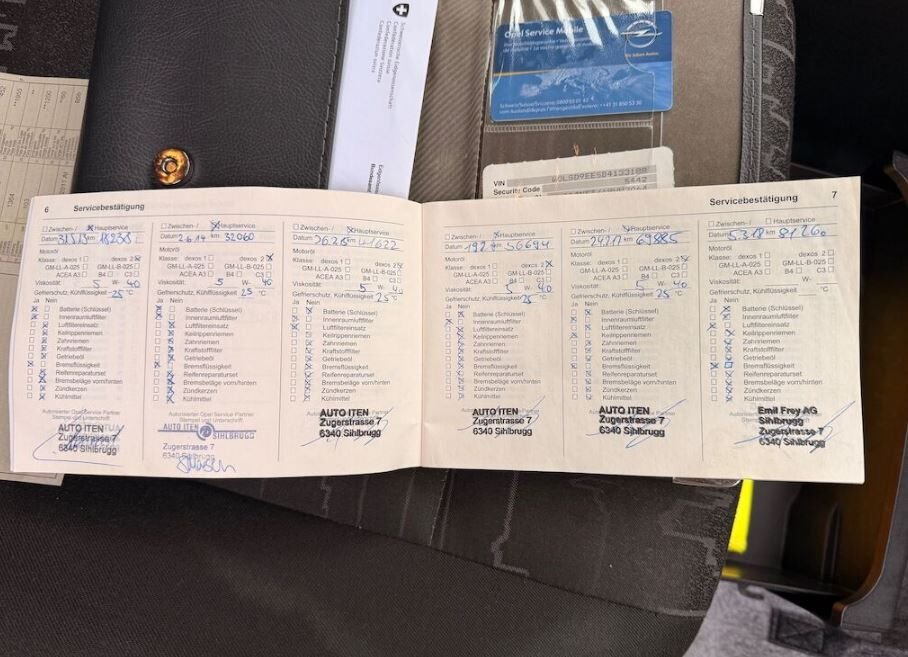 Schweizerische Eidgenossenschaft
Confédération suisse
Confederazione Svizzera
Confederaziun svizra
Opel Service Mobile
Wir leben Autos.
VIN
Security Code
6 Servicebestätigung
Zwischen-/ Hauptservice
Datum 31.5.13 km
Motoröl
Klasse: dexos 1 dexos 2
GM-LL-A-025 GM-LL-B-025
ACEA A3 B4 C3
Viskosität 5 W- 40
Gefrierschutz, Kühlflüssigkeit -25 °C
Ja Nein
Batterie (Schlüssel)
Innenraumluftfilter
Luftfiltereinsatz
Keilrippenriemen
Zahnriemen
Kraftstofffilter
Getriebeöl
Bremsflüssigkeit
Reifenreparaturset
Bremsbeläge vorn/hinten
Zündkerzen
Kühlmittel
Autorisierter Opel Service Partner
Stempel und Unterschrift
AUTO ITEN
Zugerstrasse 7
6340 Sihlbrugg
Zwischen-/ Hauptservice
Datum 2.6.14 km 32060
Motoröl
Klasse: dexos 1 dexos 2
GM-LL-A-025 GM-LL-B-025
ACEA A3 B4 C3
Viskosität: 5 W- 40
Gefrierschutz, Kühlflüssigkeit 25 °C
Ja Nein
Batterie (Schlüssel)
Innenraumluftfilter
Luftfiltereinsatz
Keilrippenriemen
Zahnriemen
Kraftstofffilter
Getriebeöl
Bremsflüssigkeit
Reifenreparaturset
Bremsbeläge vorn/hinten
Zündkerzen
Kühlmittel
Autorisierter Opel Service Partner
Stempel und Unterschrift
AUTO ITEN
SIHLBRUGG
Zugerstrasse 7
6340 Sihlbrugg
Zwischen-/ Hauptservice
Datum km 41622
Motoröl
Klasse: dexos 1 dexos 2
GM-LL-A-025 GM-LL-B-025
ACEA A3 B4 C3
Viskosität: 5 W- 40
Gefrierschutz, Kühlflüssigkeit 25 °C
Ja Nein
Batterie (Schlüssel)
Innenraumluftfilter
Luftfiltereinsatz
Keilrippenriemen
Zahnriemen
Kraftstofffilter
Getriebeöl
Bremsflüssigkeit
Reifenreparaturset
Bremsbeläge vorn/hinten
Zündkerzen
Kühlmittel
AUTO ITEN
Zugerstrasse 7
6340 Sihlbrugg
Servicebestätigung 7
Zwischen-/ Hauptservice
Datum km 56694
Motoröl
Klasse: dexos 1 dexos 2
GM-LL-A-025 GM-LL-B-025
ACEA A3 B4 C3
Viskosität: 5 W- 40
Gefrierschutz, Kühlflüssigkeit 25 °C
Ja Nein
Batterie (Schlüssel)
Innenraumluftfilter
Luftfiltereinsatz
Keilrippenriemen
Zahnriemen
Kraftstofffilter
Getriebeöl
Bremsflüssigkeit
Reifenreparaturset
Bremsbeläge vorn/hinten
Zündkerzen
Kühlmittel
AUTO ITEN
Zugerstrasse 7
6340 Sihlbrugg
Zwischen-/ Hauptservice
Datum km 69885
Motoröl
Klasse: dexos 1 dexos 2
GM-LL-A-025 GM-LL-B-025
ACEA A3 B4 C3
Viskosität: 5 W- 40
Gefrierschutz, Kühlflüssigkeit 25 °C
Ja Nein
Batterie (Schlüssel)
Innenraumluftfilter
Luftfiltereinsatz
Keilrippenriemen
Zahnriemen
Kraftstofffilter
Getriebeöl
Bremsflüssigkeit
Reifenreparaturset
Bremsbeläge vorn/hinten
Zündkerzen
Kühlmittel
AUTO ITEN
Zugerstrasse 7
6340 Sihlbrugg
Zwischen-/ Hauptservice
Datum 5.3.18 km
Motoröl
Klasse: dexos 1 dexos 2
GM-LL-A-025 GM-LL-B-025
ACEA A3 B4 C3
Viskosität: W-
Gefrierschutz, Kühlflüssigkeit °C
Ja Nein
Batterie (Schlüssel)
Innenraumluftfilter
Luftfiltereinsatz
Keilrippenriemen
Zahnriemen
Kraftstofffilter
Getriebeöl
Bremsflüssigkeit
Reifenreparaturset
Bremsbeläge vorn/hinten
Zündkerzen
Kühlmittel
Emil Frey AG
Sihlbrugg
Zugerstrasse 7
6340 Sihlbrugg